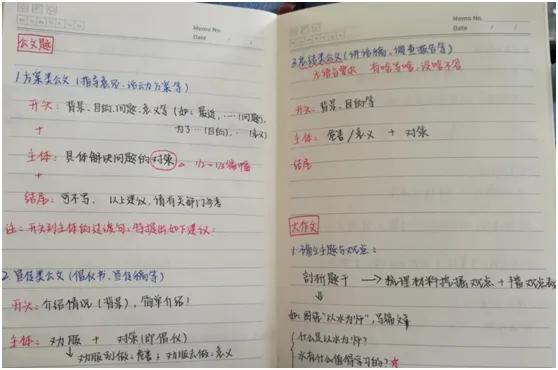 Memo No.
Date / /
公文题
1.方案类公文(指导意见、活动方案等)
开头:背景、目的、问题、意义等(如:最近,…(问题),
+ 为了…(目的),…(意义)
主体:具体解决问题的对策 1/2-1/3篇幅
+
结尾:可不写,以上建议,请有关部门参考
注:开头到主体的过渡句:特提出如下建议:
2.宣传类公文(倡议书、宣传稿等)
开头:介绍情况(背景),简单介绍!
主体:劝服 + 对策(即倡议)
↓劝服别做:危害;劝服去做:意义
Memo No.
Date / /
3.总结类公文(讲话稿、调查报告等)
有啥写啥,没啥不写
开头:背景、目的等
主体:危害/意义 + 对策
结尾
大作文
1.确立主题与观点:
剖析题干 → 梳理材料挖掘观点 +
↓
如:围绕"以水为师",写篇文章
什么是以水为师?
水有什么值得学习的?☆